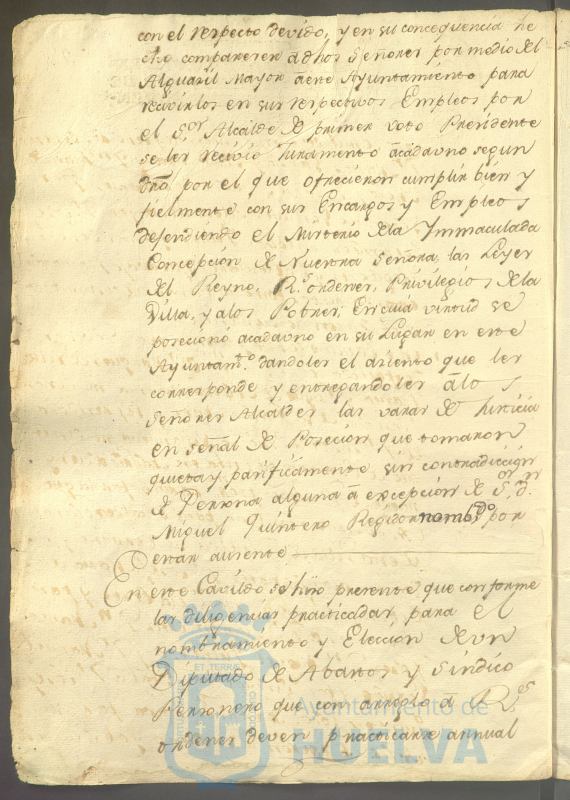 con el respecto devido, y en su consequencia he
cho comparecer a dhos Señores por medio del
Alguazil Mayor de este Ayuntamiento para
recivirlos en sus respectivos Empleos por
el Sor. Alcalde de primer voto Presidente
se les recivió Juramento a cada uno segun
dro. por el que ofrecieron cumplir bien y
fielmente con sus Encargos y Empleos
defendiendo el Misterio de la Immaculada
Concepcion de Nuestra Señora, las Leyes
del Reyno, Rs. ordenes, Privilegios de la
Villa, y a los Pobres; En cuia virtud se
posecionó a cada uno en su Lugar en este
Ayuntamto. dandoles el asiento que les
corresponde y entregandoles a los
Señores Alcaldes las varas de Justicia
en señal de Posecion que tomaron
quieta y pacificamente sin contradiccion
de Persona alguna a excepcion de Sor. Dn.
Miguel Quintero Regidor nombdo. por
estar ausente
En este Cavildo se hizo presente que conforme
las diligencias practicadas para el
nombramiento y Eleccion de un
Diputado de Abastos y Sindico
Personero que con arreglo a Rs.
ordenes deven practicarse annual
Ayuntamiento de
HUELVA